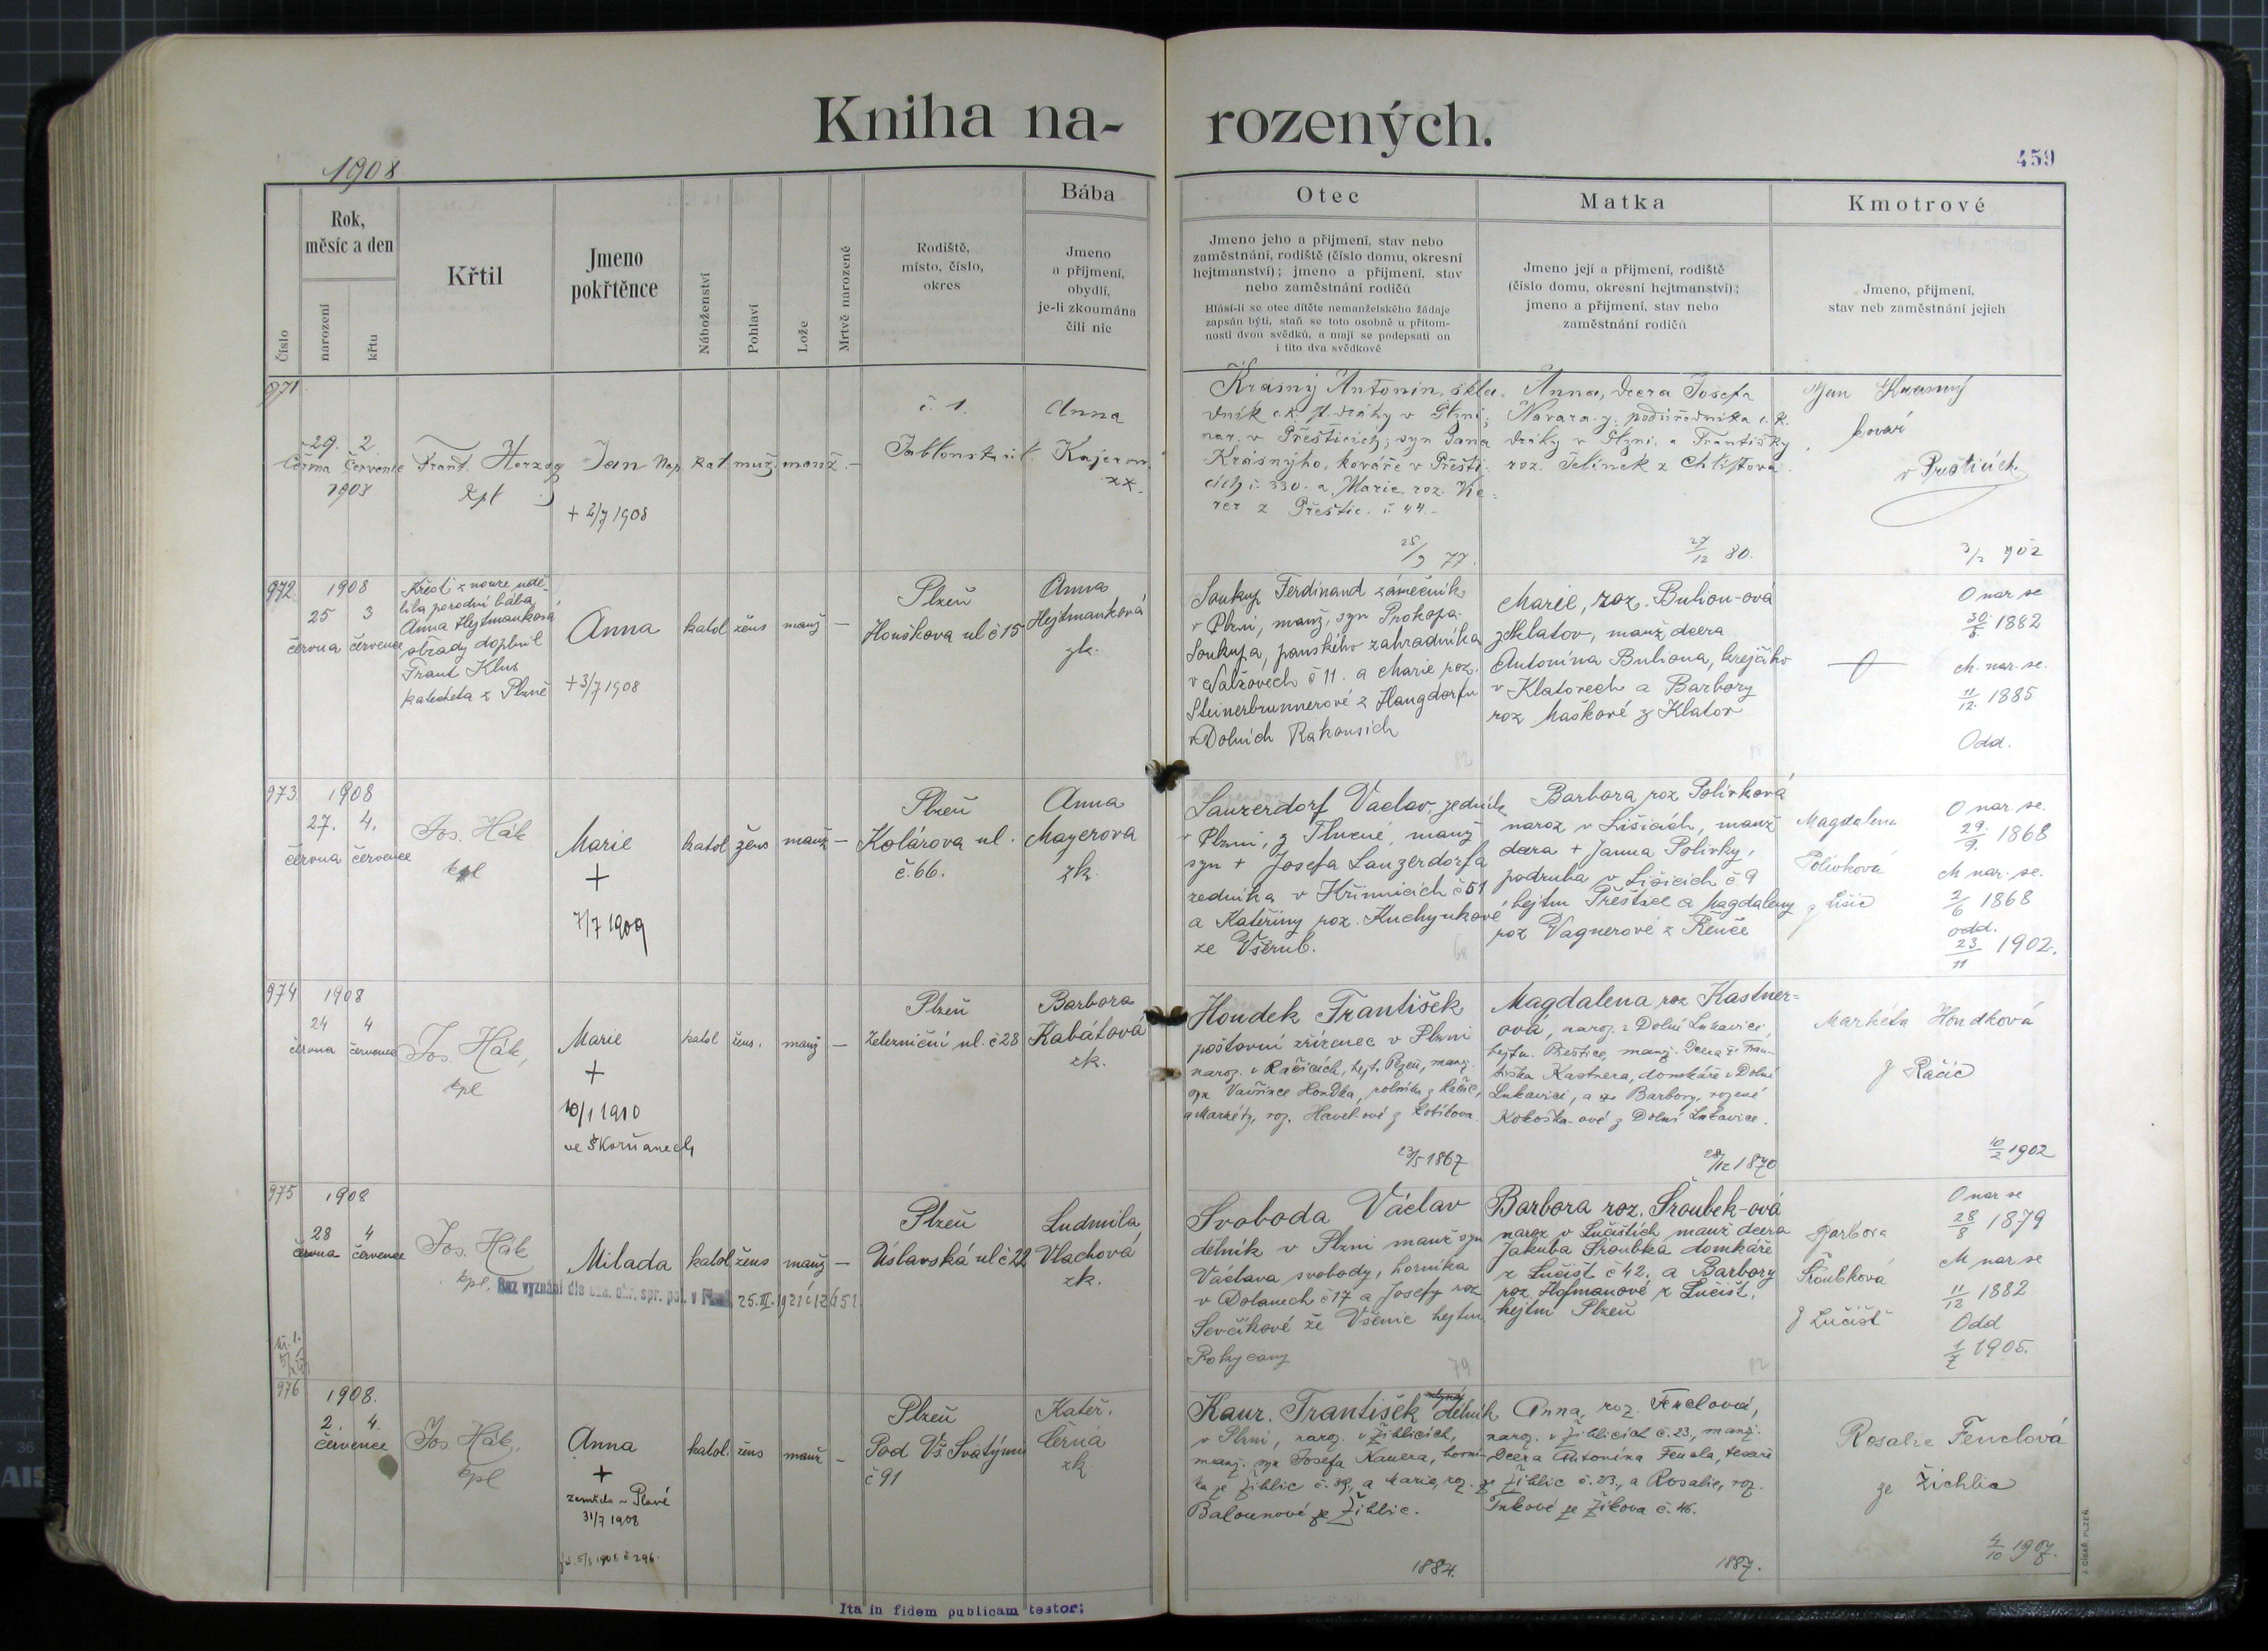 Kniha na-
rozených.
1908
459
Číslo
Rok,
měsíc a den
narození
křtu
Křtil
Jmeno
pokřtěnce
Náboženství
Pohlaví
Lože
Mrtvě narozené
Rodiště,
místo, číslo,
okres
Bába
Jmeno
a příjmení,
obydlí,
je-li zkoumána
čili nic
Otec
Jmeno jeho a přijmení, stav nebo
zaměstnání, rodiště (číslo domu, okresní
hejtmanství); jmeno a přijmení, stav
nebo zaměstnání rodičů
Hlásí-li se otec dítěte nemanželského žádaje
zapsán býti, staň se toto osobně u přítom-
nosti dvou svědků, a mají se podepsati on
i tito dva svědkové
Matka
Jmeno její a přijmení, rodiště
(číslo domu, okresní hejtmanství);
jmeno a přijmení, stav nebo
zaměstnání rodičů
Kmotrové
Jmeno, přijmení,
stav neb zaměstnání jejich
971
29. 2
června července
1908
Frant. Herzog
kpl
Jan Nep.
+ 2/7 1908
kat. muž. manž. —
č. 1.
Jablonského ul.
Anna
zk.
Krásný Antonín, skla-
dník c.k. st. dráhy v Plzni;
nar. v Přešticích; syn Jana
Krásnýho, kováře v Přešti-
cích č. 330. a Marie, roz. Vie-
rer z Přeštic. č. 44.
25/9 77.
Anna, dcera Josefa
podúředníka c.k.
dráhy v Plzni. a Františky
roz. Jelínek z Chlistova.
27/12 80.
Jan Krasný
kovář
v Přešticích
3/2 902
972.
1908
25 3
června července
Křest z nouze udě-
lila porodní bába
Anna Hejtmanková
obřady doplnil
Frant Klus
katecheta z Plzně
Anna
+ 3/7 1908
katol žens manž —
Plzeň
Houškova ul č 15
Anna
Hejtmanková
zk.
Soukup Ferdinand zámečník
v Plzni, manž. syn Prokopa
Soukupa, panského zahradníka
v Nalžovech č 11. a Marie roz.
Steinerbrunnerové z Haugdorfu
v Dolních Rakousích
82
Marie, roz. Bulion-ová
z Klatov, manž. dcera
Antonína Buliona, krejčího
v Klatovech a Barbory
roz Maškové z Klatov
O nar se
30/5. 1882
M. nar. se.
11/12. 1885
Odd.
973
1908
27. 4.
června července
Jos. Hák
kpl
Marie
+
7/7 1909
katol žens manž —
Plzeň
Kolárova ul.
č. 66.
Anna
Mayerova
zk.
Lanzerdorf Vaclav, zedník
v Plzni, z Tlucné, manž
syn + Josefa Lanzerdorfa
zedníka v Křimicích č 51
a Kateřiny roz. Kuchynkové
ze Všerub.
68
Barbara roz Polívková
naroz v Lišicích, manž
dcera + Janna Polívky,
podruha v Lišicích č 9
hejtm Přeštice a Magdaleny
roz Vagnerové z Řenče
Magdalena
Polívková
z Lišic
O nar. se.
29./9. 1868
M nar. se.
2/6 1868
odd.
23/11 1902.
974
1908
24 4
června července
Jos. Hák,
kpl
Marie
+
10/1 1910
ve Skorňanech
katol žens. manž —
Plzeň
Železniční ul. č 28
Barbora
Kabátová
zk.
Houdek František
poštovní zřízenec v Plzni
naroz. v Račicích, hejt. Plzeň, manž.
syn Vavřince Houdka, rolníka z Račic,
a Markéty, roz. Havelkové z
23/5 1867
Magdalena roz Kastner-
ová, naroz. v Dolní Lukavici,
hejtm. Přeštice, manž. dcera Fran-
tiška Kastnera, domkáře v Dolní
Lukavici, a Barbory, rozené
Kokoška-ové z Dolní Lukavice.
28/12 1870
Markéta Houdková
z Račic
10/2 1902
975
1908
28 4
června července
Jos. Hák
kpl.
Milada
katol žens manž —
Bez vyznání dle ozn. okr. spr. pol. v Plzni 25. III. 1921 č 12651
Plzeň
Úslavská ul č 22
Ludmila
Vlachová
zk.
Svoboda Václav
dělník v Plzni manž syn
Václava svobody, horníka
v Dolanech č 17 a Josefy roz
Sevčíkové ze Všenic hejtm.
Rokycany
79
Barbora roz. Šroubek-ová
naroz v Lučištích manž dcera
Jakuba Šroubka domkáře
z Lučišt č 42. a Barbory
roz. Hofmanové z Lučišt.
hejtm Plzeň
82
Barbora
Šroubková
z Lučišt
O nar se
28/8 1879
M nar se
11/12 1882
Odd
1/7 1905.
976
1908.
2. 4.
července
Jos Hák,
kpl
Anna
+
zemřela v Plané
31/7 1908
katol. žens manž —
Plzeň
Pod Vš. Svatými
č 91
Kateř.
Černá
zk
Kaur. František dělník
v Plzni, naroz. v Žihlicích,
manž. syn Josefa Kauera, horní-
ka ze Žihlic č. 39, a Marie, roz.
Balounové ze Žihlic.
1884.
Anna, roz. Fenclová,
naroz. v Žihlicích č. 23, manž.
dcera Antonína Fencla, tesaře
ze Žihlic č. 23, a Rosalie, roz.
Inkové ze Žikova č. 46.
1887.
Rosalie Fenclová
ze Žichlic
4/10 1907.
Ita in fidem publicam testor:
J. CÍSAŘ, PLZEŇ.